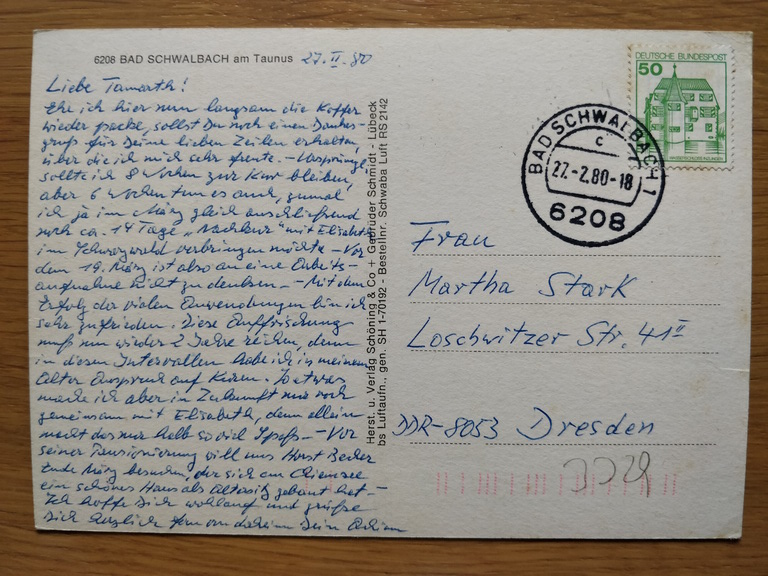 6208 BAD SCHWALBACH am Taunus 27. II. 80
Liebe Tamarth!
Ehe ich hier nun langsam die Koffer
wieder packe, sollst Du noch einen Dankes-
gruß für Deine lieben Zeilen erhalten,
über die ich mich sehr freute. – Ursprüngl.
sollte ich 8 Wochen zur Kur bleiben,
aber 6 Wochen tun es auch, zumal
ich ja im März gleich anschließend
noch ca. 14 Tage „Nachkur" mit Elisabeth
im Schwarzwald verbringen möchte – Vor
dem 19. März ist also an eine Arbeits-
aufnahme nicht zu denken. – Mit dem
Erfolg der vielen Anwendungen bin ich
sehr zufrieden. Diese Auffrischung
muß nun wieder 2 Jahre reichen, denn
in diesen Intervallen habe ich in meinem
Alter Anspruch auf Kuren. So etwas
mache ich aber in Zukunft nur noch
gemeinsam mit Elisabeth, denn allein
macht das nur halb so viel Spaß – Vor
seiner Pensionierung will uns Horst Becker
Ende März besuchen, der sich am Chiemsee
ein schönes Haus als Altersitz gebaut hat. –
Ich hoffe Dich wohlauf und grüße
Dich herzlich Dein Achim
Herst. u. Verlag Schöning & Co + Gebrüder Schmidt - Lübeck
bs Luftaufn., gen. SH 1-70192 - Bestellnr. Schwaba Luft RS 2142
DEUTSCHE BUNDESPOST
50
WASSERSCHLOSS INZLINGEN
BAD SCHWALBACH 1
c
27.-2.80-18
6208
Frau
Martha Stark
Loschwitzer Str. 41 II
DDR-8053 Dresden